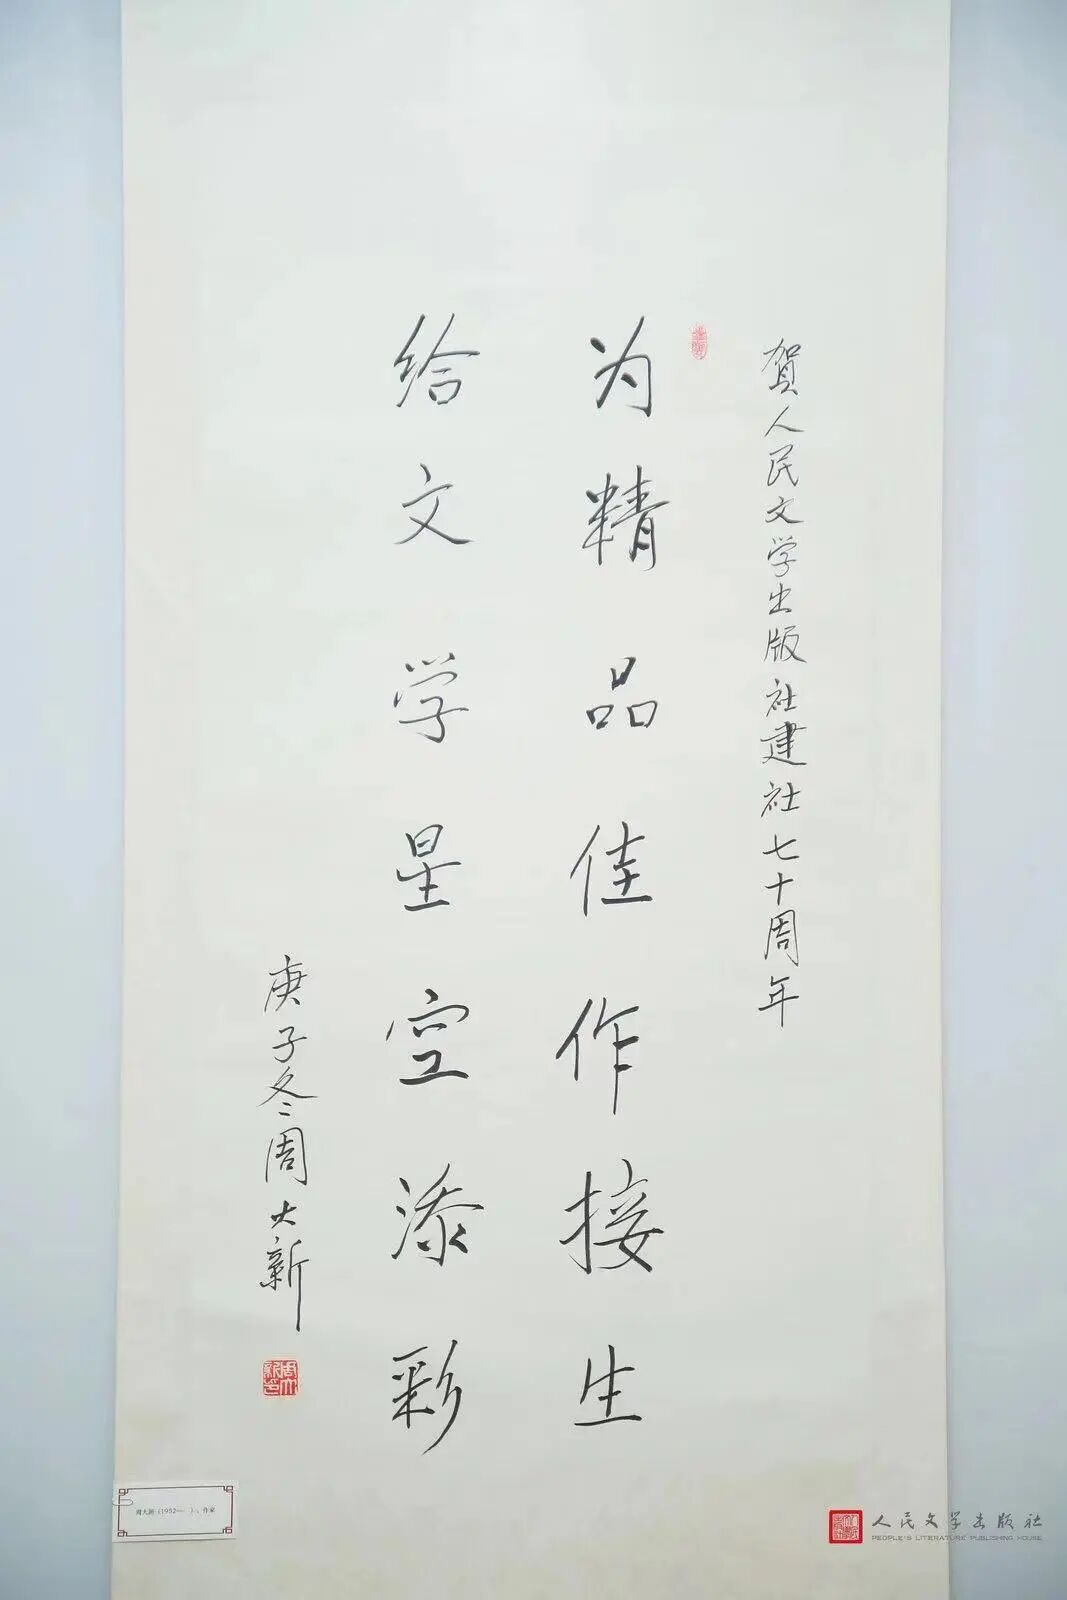 贺人民文学出版社建社七十周年
为精品佳作接生
给文学星空添彩
庚子冬周大新
周大新印
周大新(1952— ),作家
人民文学出版社
PEOPLE'S LITERATURE PUBLISHING HOUSE